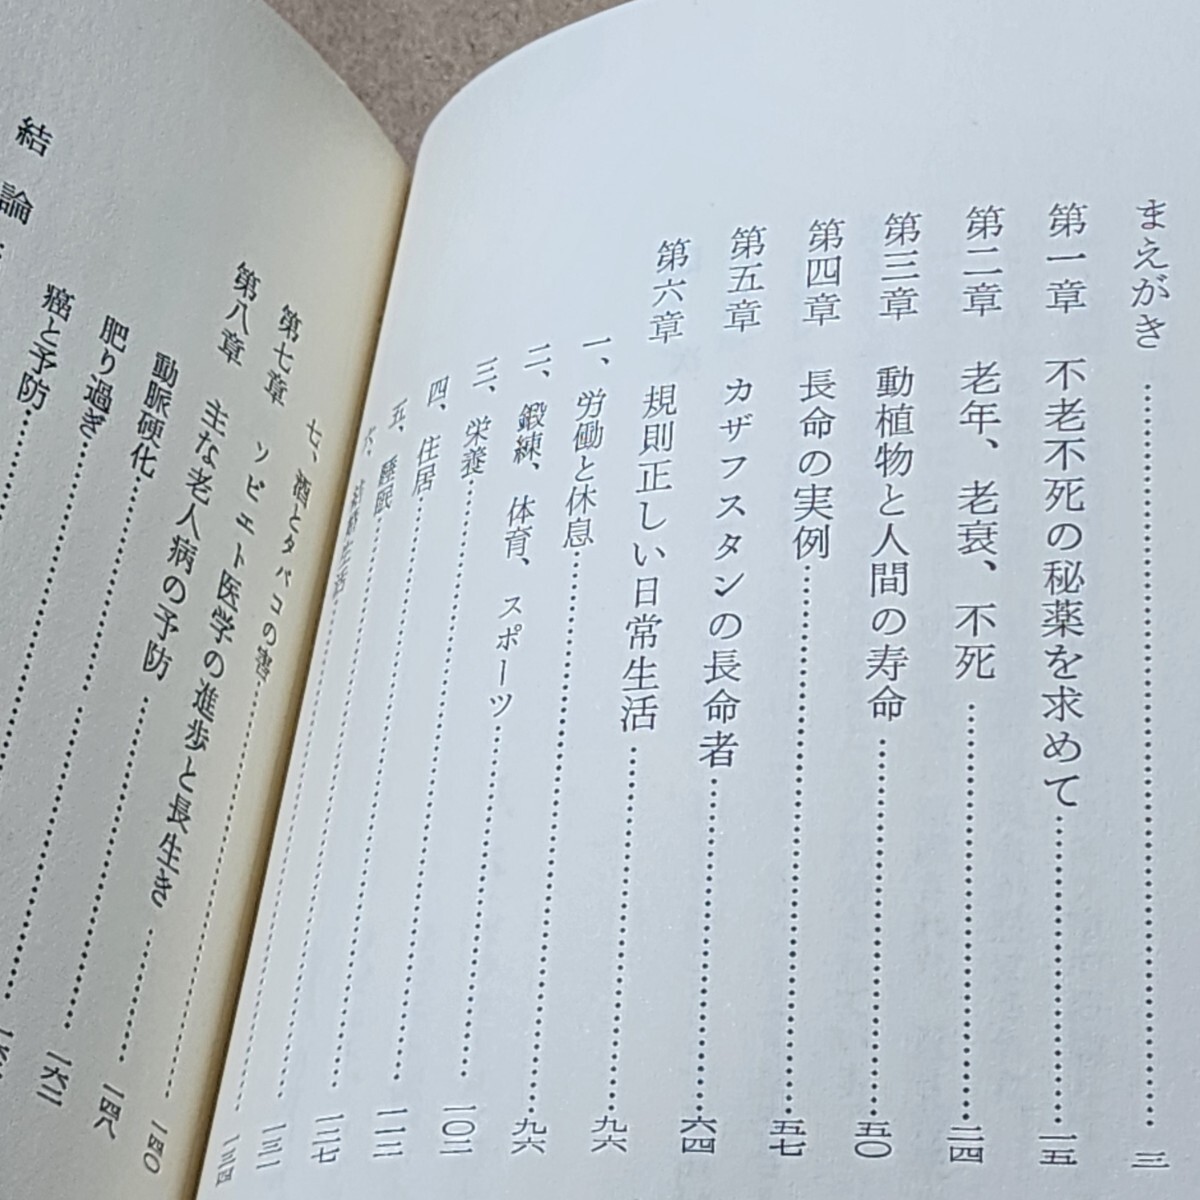 まえがき……………三
第一章　不老不死の秘薬を求めて……………一五
第二章　老年、老衰、不死……………二四
第三章　動植物と人間の寿命……………五〇
第四章　長命の実例……………五七
第五章　カザフスタンの長命者……………六四
第六章　規則正しい日常生活……………九六
一、労働と休息……………九六
二、鍛練、体育、スポーツ……………一〇二
三、栄養……………一一二
四、住居……………一二七
五、睡眠……………一三一
六、結婚生活……………一三四
七、酒とタバコの害……………一四〇
第七章　ソビエト医学の進歩と長生き……………一四八
第八章　主な老人病の予防……………一六二
動脈硬化……………
肥り過ぎ……………
癌と予防……………
結論